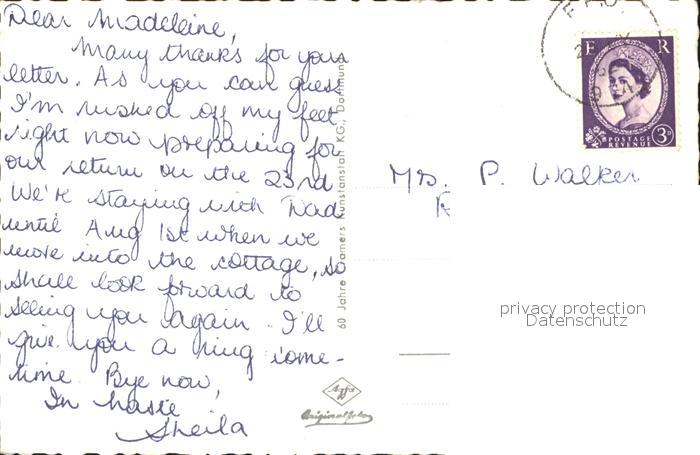 Dear Madeleine,
Many thanks for your
letter. As you can guess
I'm rushed off my feet
right now preparing for
our return on the 23rd
We're staying with Dad
until Aug 1st when we
move into the cottage, so
shall look forward to
seeing you again. I'll
give you a ring some-
time. Bye now,
In haste
Sheila
60 Jahre Cramers Kunstanstalt KG., Dortmund
Agfa
E R
POSTAGE
REVENUE
3D
Mrs. P. Walker
privacy protection
Datenschutz